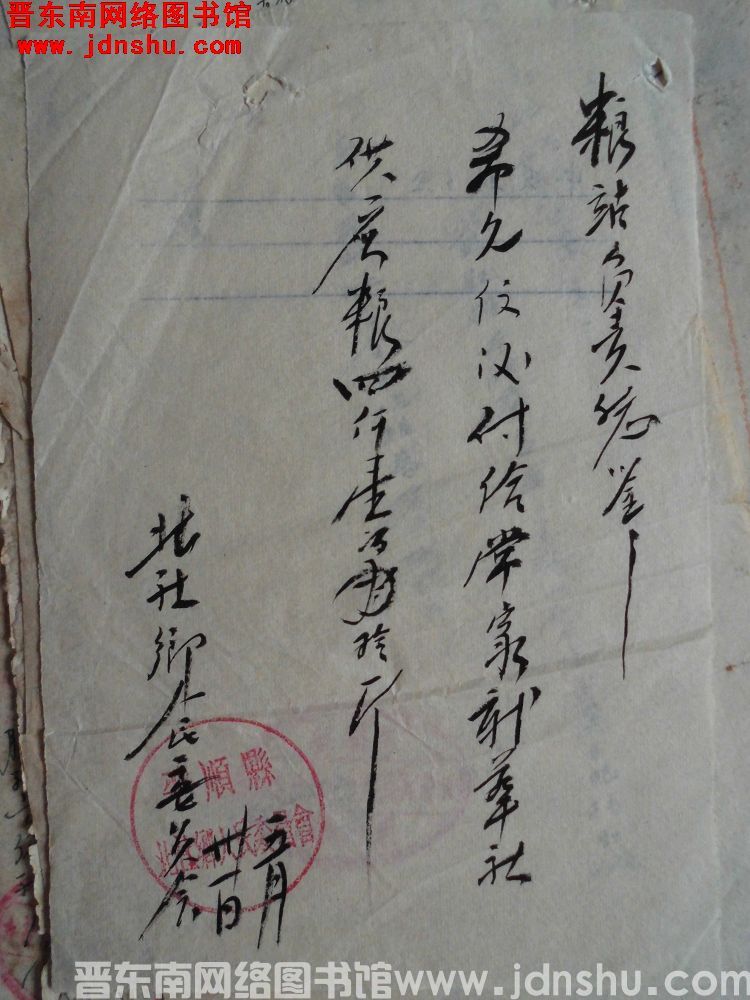 晋东南网络图书馆
www.jdnshu.com
粮站负责
希允仅 付给常家新華社
供应粮四仟壹 拾斤
北社鄉人民委员会
五月
卅一日
平順縣
北社鄉人民委員會
晋东南网络图书馆www.jdnshu.com